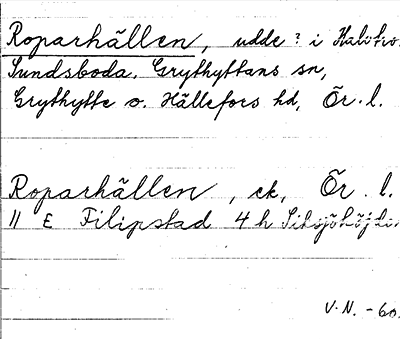 Roparhällen, udde? i Halvtro.
Sundsboda. Grythyttans sn,
Grythytte o. Hällefors hd, Ör. l.
Roparhällen, ek, Ör. l.
11 E Filipstad 4 h
V.N. -60.